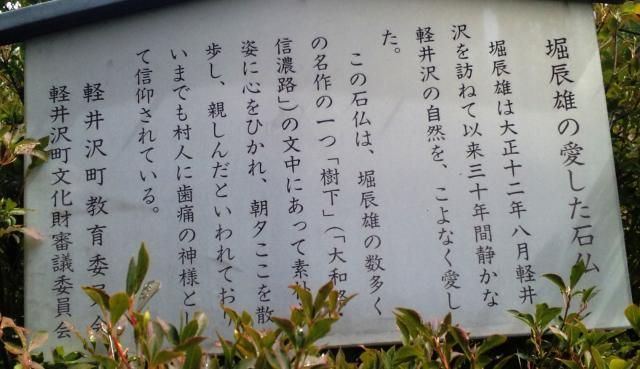 堀辰雄の愛した石仏
堀辰雄は大正十二年八月軽井
沢を訪ねて以来三十年間静かな
軽井沢の自然を、こよなく愛し
た。
この石仏は、堀辰雄の数多く
の名作の一つ「樹下」（「大和路
信濃路」）の文中にあって素朴
姿に心をひかれ、朝夕ここを散
歩し、親しんだといわれており
いまでも村人に歯痛の神様とし
て信仰されている。
軽井沢町教育委員会
軽井沢町文化財審議委員会